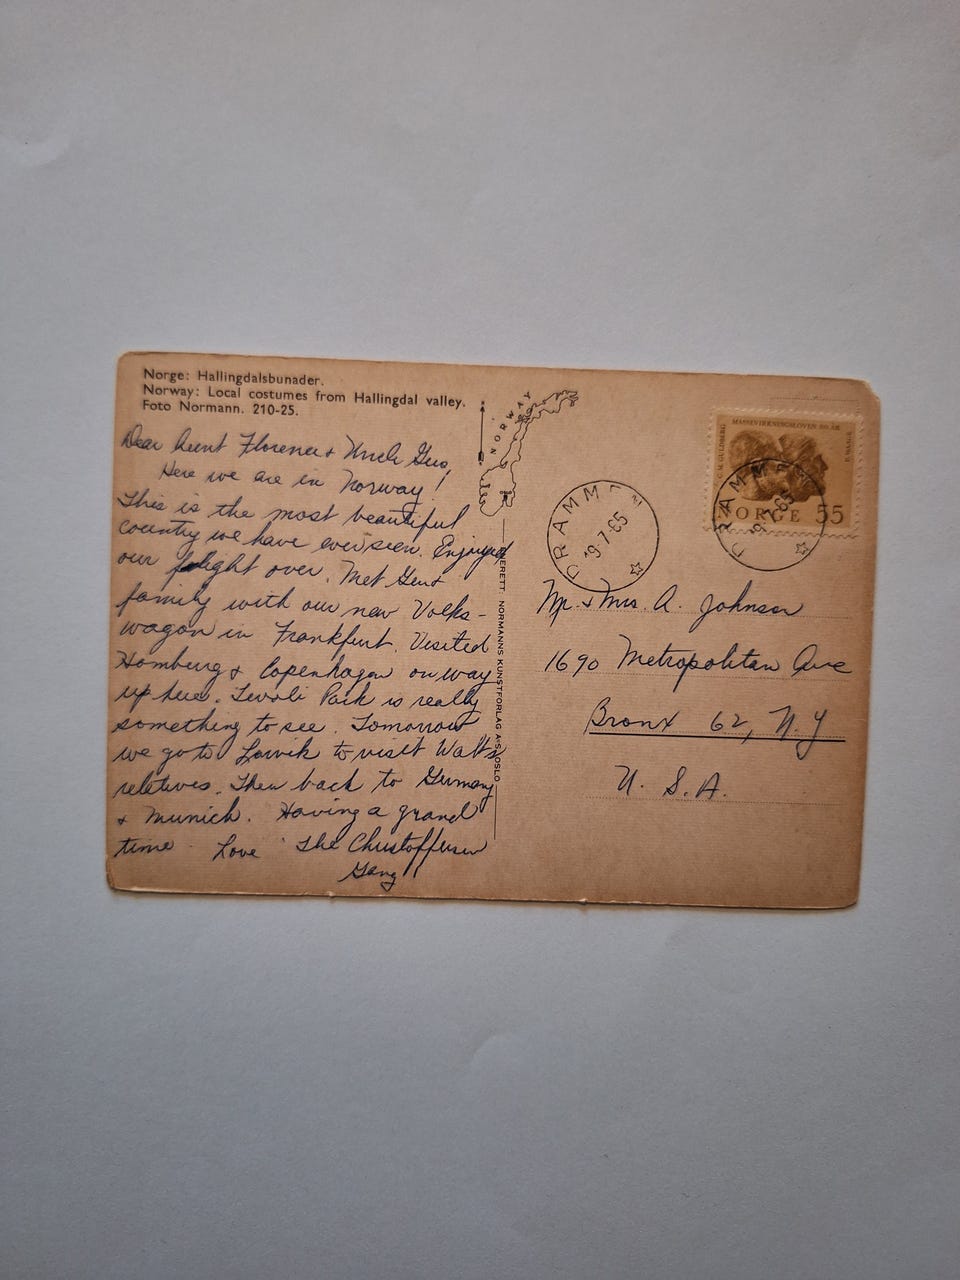 Norge: Hallingdalsbunader.
Norway: Local costumes from Hallingdal valley.
Foto Normann. 210-25.
Dear Aunt Florence & Uncle Gus,
Here we are in Norway!
This is the most beautiful
country we have ever seen. Enjoyed
our flight over. Met Gene &
family with our new Volks-
wagon in Frankfurt. Visited
Homburg & Copenhagen on way
up here. Tevoli Park is really
something to see. Tomorrow
we go to Larvik to visit Walt's
reletives. Then back to Germany
& Munich. Having a grand
time. Love The Christoffersen
Gang
NORWAY
ENERETT: NORMANNS KUNSTFORLAG A-S, OSLO
DRAMMEN
19-7-65
MASSEVIRKNINGSLOVEN 100 ÅR
C. M. GULDBERG
P. WAAGE
NORGE 55
DRAMMEN
19-7-65
Mr. & Mrs. A. Johnson
1690 Metropolitan Ave
Bronx 62, N.Y
U. S. A.